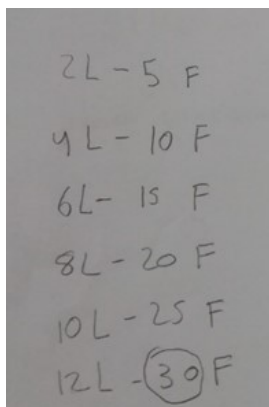 2L - 5 F
4 L - 10 F
6L - 15 F
8L - 20 F
10 L - 25 F
12L - 30 F